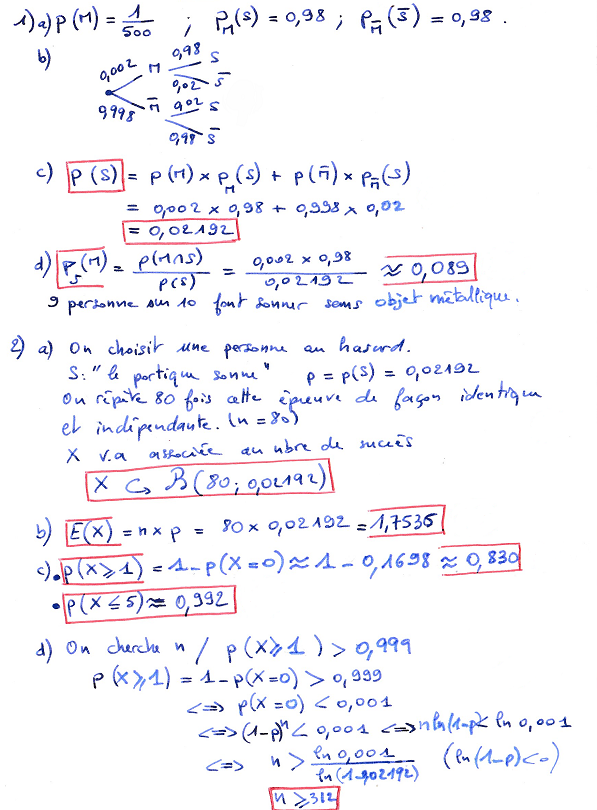 1) a) p(M) = 1/500 ; p_M(S) = 0,98 ; p_M̄(S̄) = 0,98 .
b)
0,002 M 0,98 S
0,02 S̄
0,998 M̄ 0,02 S
0,98 S̄
c) p(S) = p(M) × p_M(S) + p(M̄) × p_M̄(S)
= 0,002 × 0,98 + 0,998 × 0,02
= 0,02192
d) p_S(M) = p(M∩S)/p(S) = 0,002 × 0,98/0,02192 ≈ 0,089
9 personne sur 10 font sonner sans objet métallique.
2) a) On choisit une personne au hasard.
S: "le portique sonne" p = p(S) = 0,02192
On répète 80 fois cette épreuve de façon identique
et indépendante. (n = 80)
X v.a associée au nbre de succès
X ↪ B(80 ; 0,02192)
b) E(X) = n × p = 80 × 0,02192 = 1,7536
c) • p(X ⩾ 1) = 1 - p(X = 0) ≈ 1 - 0,1698 ≈ 0,830
• p(X ⩽ 5) ≈ 0,992
d) On cherche n / p(X ⩾ 1) > 0,999
p(X ⩾ 1) = 1 - p(X = 0) > 0,999
⟺ p(X = 0) < 0,001
⟺ (1-p)^n < 0,001 ⟺ n ln(1-p) < ln 0,001
⟺ n > ln 0,001/ln(1-0,02192) (ln(1-p) < 0)
n ⩾ 312